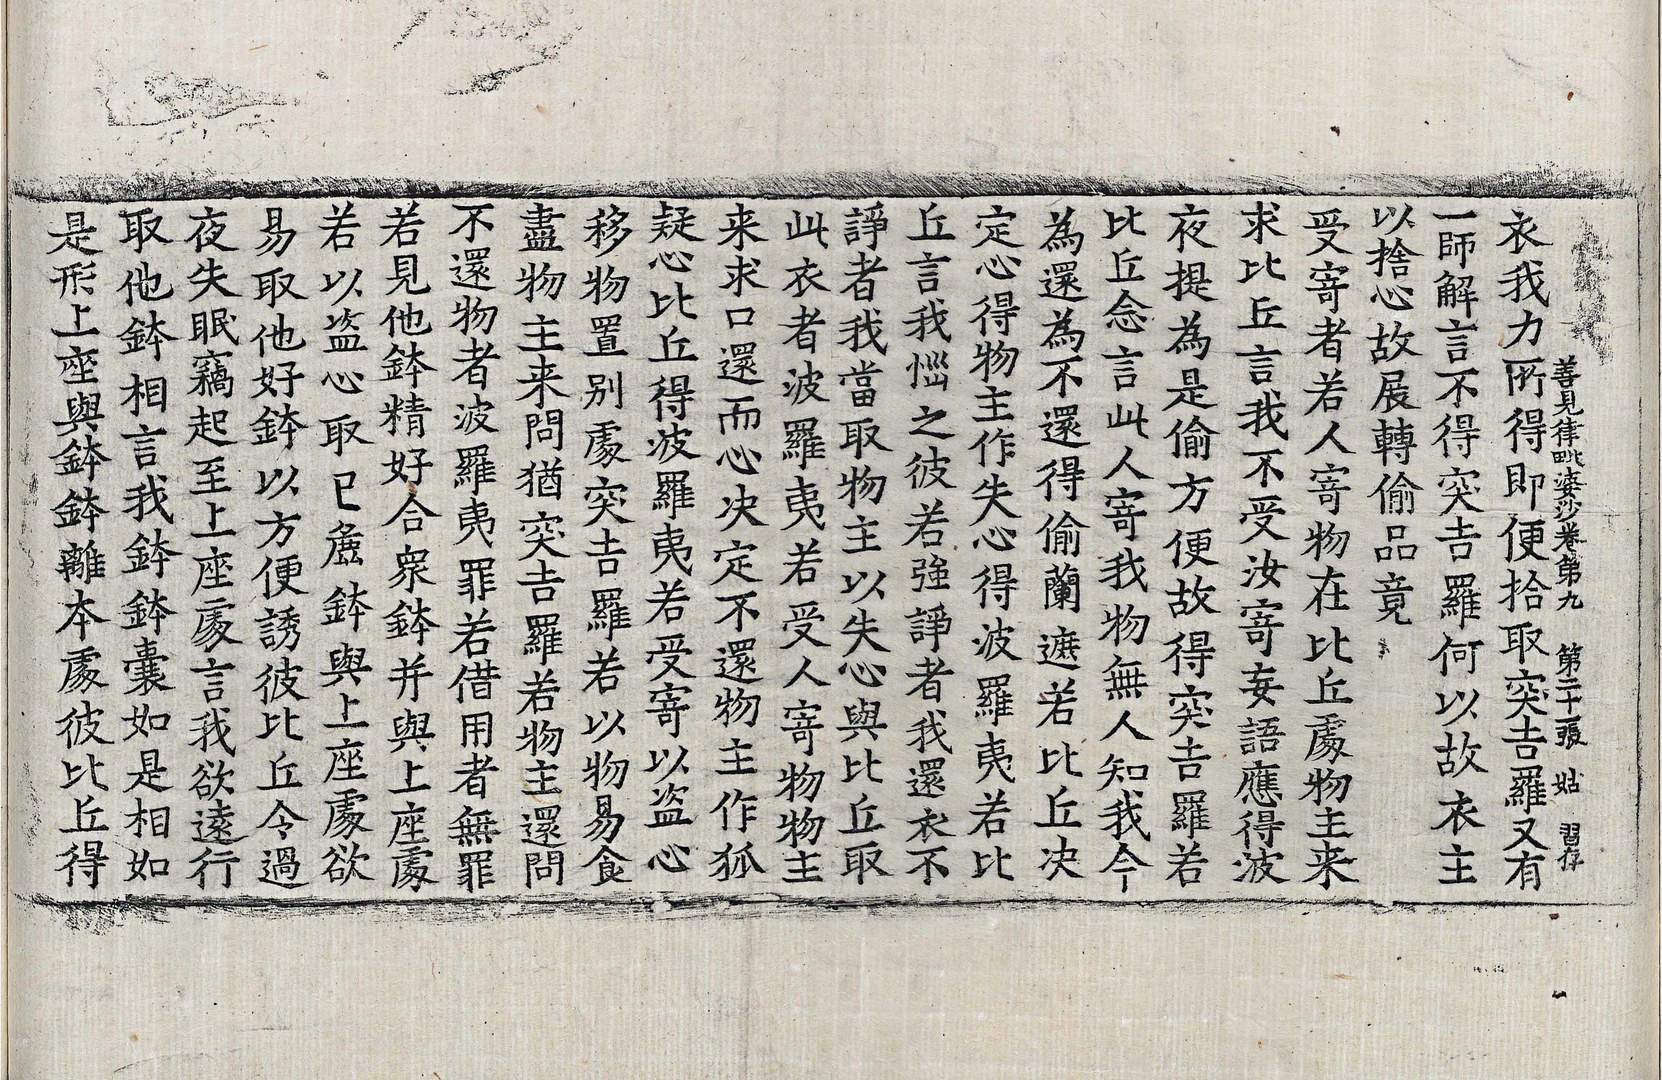 善見律毗婆沙卷第九　第二十張　姑　習存
衣我力所得即便拾取突吉羅又有
一師解言不得突吉羅何以故衣主
以捨心故展轉偷品竟
受寄者若人寄物在比丘處物主来
求比丘言我不受汝寄妄語應得波
夜提為是偷方便故得突吉羅若
比丘念言此人寄我物無人知我今
為還為不還得偷蘭遮若比丘决
定心得物主作失心得波羅夷若比
丘言我惱之彼若強諍者我還衣不
諍者我當取物主以失心與比丘取
此衣者波羅夷若受人寄物物主
来求口還而心决定不還物主作狐
疑心比丘得波羅夷若受寄以盗心
移物置别處突吉羅若以物易食
盡物主来問猶突吉羅若物主還問
不還物者波羅夷罪若借用者無罪
若見他鉢精好合衆鉢并與上座處
若以盗心取已麁鉢與上座處欲
易取他好鉢以方便誘彼比丘令過
夜失眠竊起至上座處言我欲遠行
取他鉢相言我鉢鉢囊如是相如
是形上座與鉢鉢離本處彼比丘得